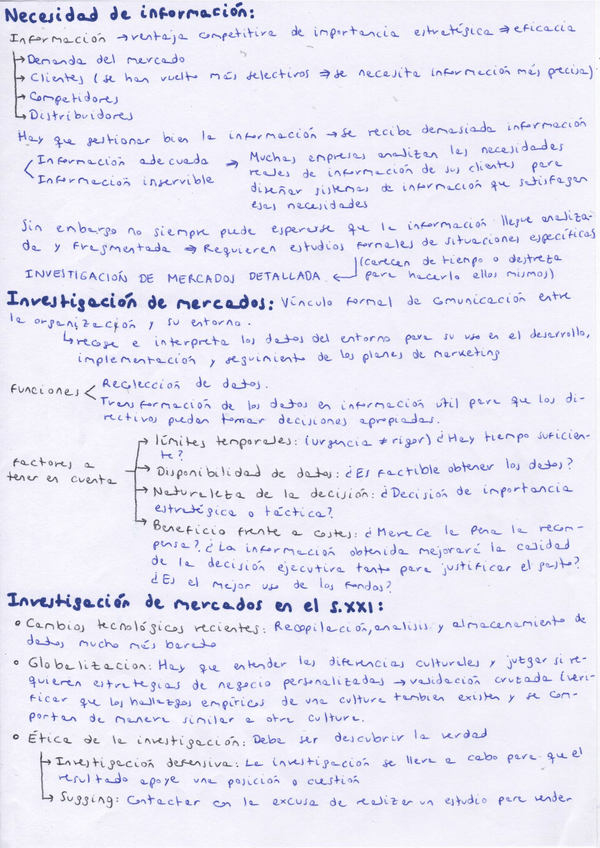 Necesidad de información:
Información → ventaja competitiva de importancia estratégica ⇒ eficacia
→ Demanda del mercado
→ Clientes (se han vuelto más selectivos ⇒ se necesita información más precisa)
→ Competidores
→ Distribuidores
Hay que gestionar bien la información → se recibe demasiada información
Información adecuada → Muchas empresas analizan las necesidades
Información inservible reales de información de sus clientes para
diseñar sistemas de información que satisfagan
esas necesidades
Sin embargo no siempre puede esperarse que la información llegue analiza-
da y fragmentada ⇒ Requieren estudios formales de situaciones específicas
(carecen de tiempo o destreza
INVESTIGACIÓN DE MERCADOS DETALLADA ← para hacerlo ellos mismos)
Investigación de mercados: Vínculo formal de comunicación entre
la organización y su entorno.
↳ recoge e interpreta los datos del entorno para su uso en el desarrollo,
implementación y seguimiento de los planes de marketing
Funciones < Recolección de datos.
Transformación de los datos en información útil para que los di-
rectivos puedan tomar decisiones apropiadas.
→ límites temporales: (urgencia ≠ rigor) ¿Hay tiempo suficien-
te?
Factores a tener en cuenta → Disponibilidad de datos: ¿Es factible obtener los datos?
→ Naturaleza de la decisión: ¿Decisión de importancia
estratégica o táctica?
→ Beneficio frente a costes: ¿Merece la pena la recom-
pensa? ¿La información obtenida mejorará la calidad
de la decisión ejecutiva tanto para justificar el gasto?
¿Es el mejor uso de los fondos?
Investigación de mercados en el s.XXI:
• Cambios tecnológicos recientes: Recopilación, analisis y almacenamiento de
datos mucho más barato
• Globalizacion: Hay que entender las diferencias culturales y juzgar si re-
quieren estrategias de negocio personalizadas → validación cruzada (veri-
ficar que los hallazgos empíricos de una cultura tambien existen y se com-
portan de manera similar a otra cultura.
• Ética de la investigación: Debe ser descubrir la verdad
→ Investigación defensiva: La investigación se lleva a cabo para que el
resultado apoye una posición o cuestión
→ Sugging: Contactar con la excusa de realizar un estudio para vender